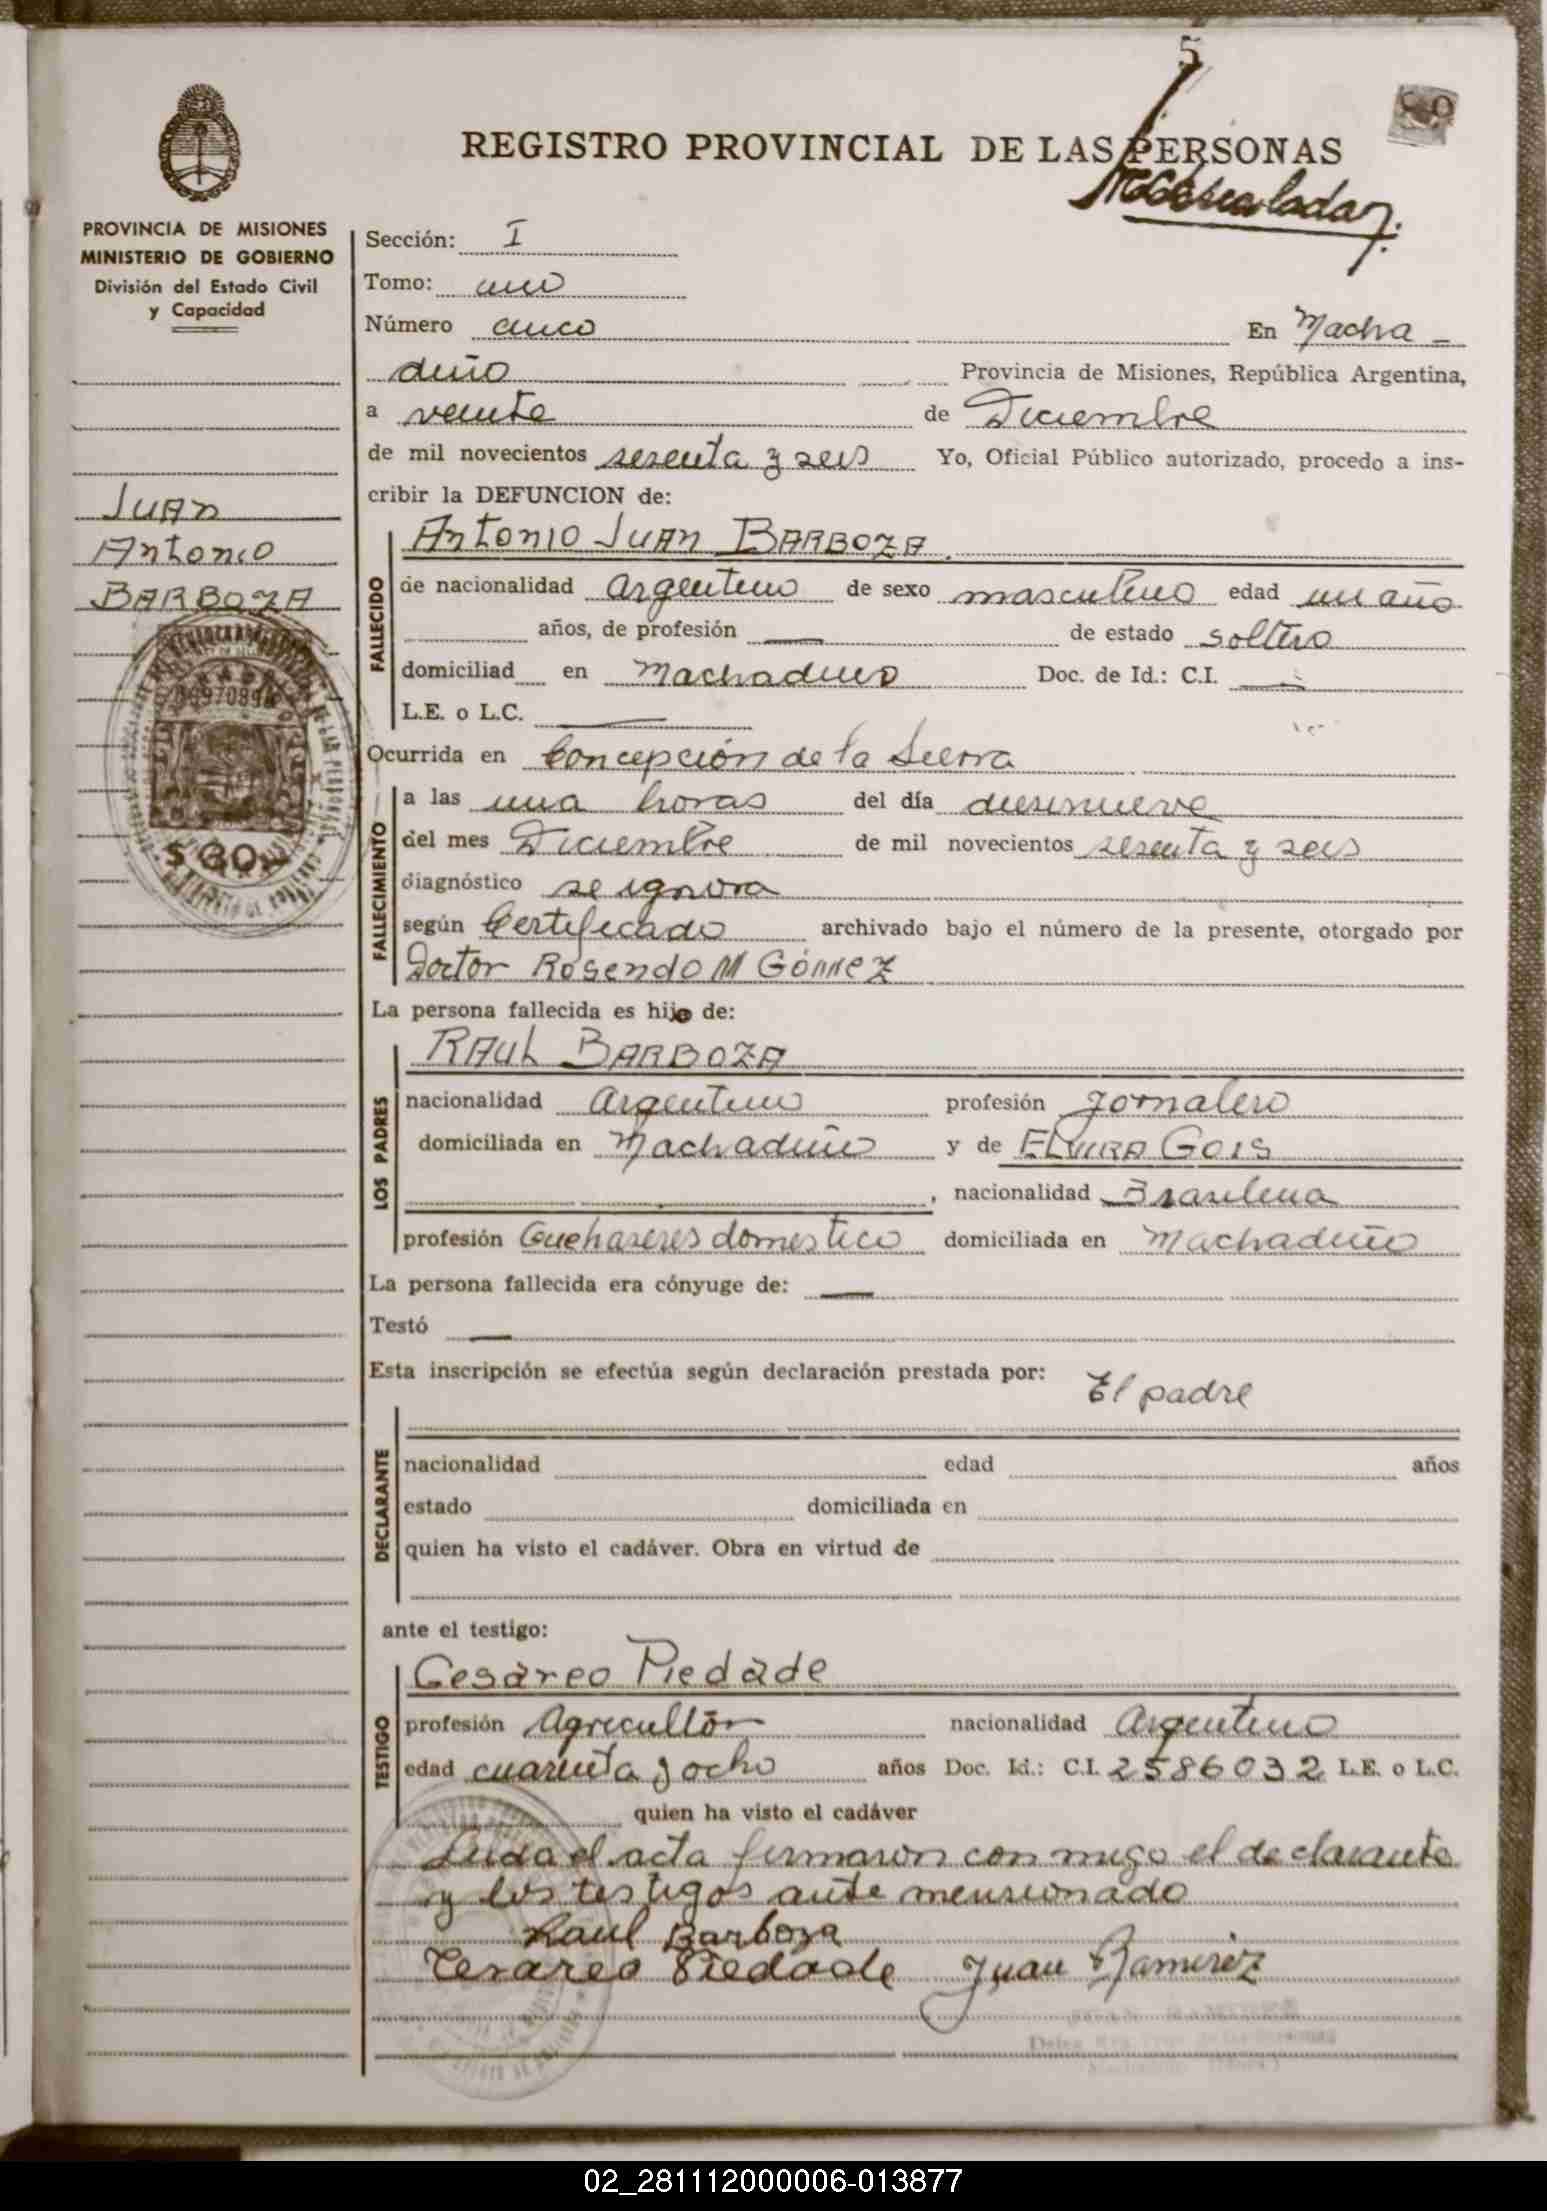 5
REGISTRO PROVINCIAL DE LAS PERSONAS
PROVINCIA DE MISIONES
MINISTERIO DE GOBIERNO
División del Estado Civil
y Capacidad
Juan
Antonio
BARBOZA
$ 60.-
Sección: I
Tomo: uno
Número cinco En Macha-
diño Provincia de Misiones, República Argentina,
a veinte de Diciembre
de mil novecientos sesenta y seis Yo, Oficial Público autorizado, procedo a ins-
cribir la DEFUNCION de:
FALLECIDO
Antonio Juan BARBOZA
de nacionalidad Argentino de sexo masculino edad un año
años, de profesión — de estado soltero
domiciliad en Machadiño Doc. de Id.: C.I. —
L.E. o L.C. —
Ocurrida en Concepción de la Sierra
FALLECIMIENTO
a las una horas del día diesinueve
del mes Diciembre de mil novecientos sesenta y seis
diagnóstico se ignora
según Certificado archivado bajo el número de la presente, otorgado por
Doctor Rosendo M Gómez
La persona fallecida es hijo de:
LOS PADRES
RAUL BARBOZA
nacionalidad Argentino profesión Jornalero
domiciliada en Machadiño y de ELVIRA GOIS
, nacionalidad Brasilena
profesión Quehaseres domestico domiciliada en Machadiño
La persona fallecida era cónyuge de: —
Testó —
Esta inscripción se efectúa según declaración prestada por: El padre
DECLARANTE
nacionalidad edad años
estado domiciliada en
quien ha visto el cadáver. Obra en virtud de
ante el testigo:
TESTIGO
Cesáreo Piedade
profesión Agricultor nacionalidad Argentino
edad cuarenta y ocho años Doc. Id.: C.I. 2586032 L.E. o L.C.
quien ha visto el cadáver
Leida el acta firmaron con migo el declarante
y los testigos ante mensionado
Raul Barboza
Cesareo Piedade Juan Ramirez
JUAN RAMIREZ
02_281112000006-013877